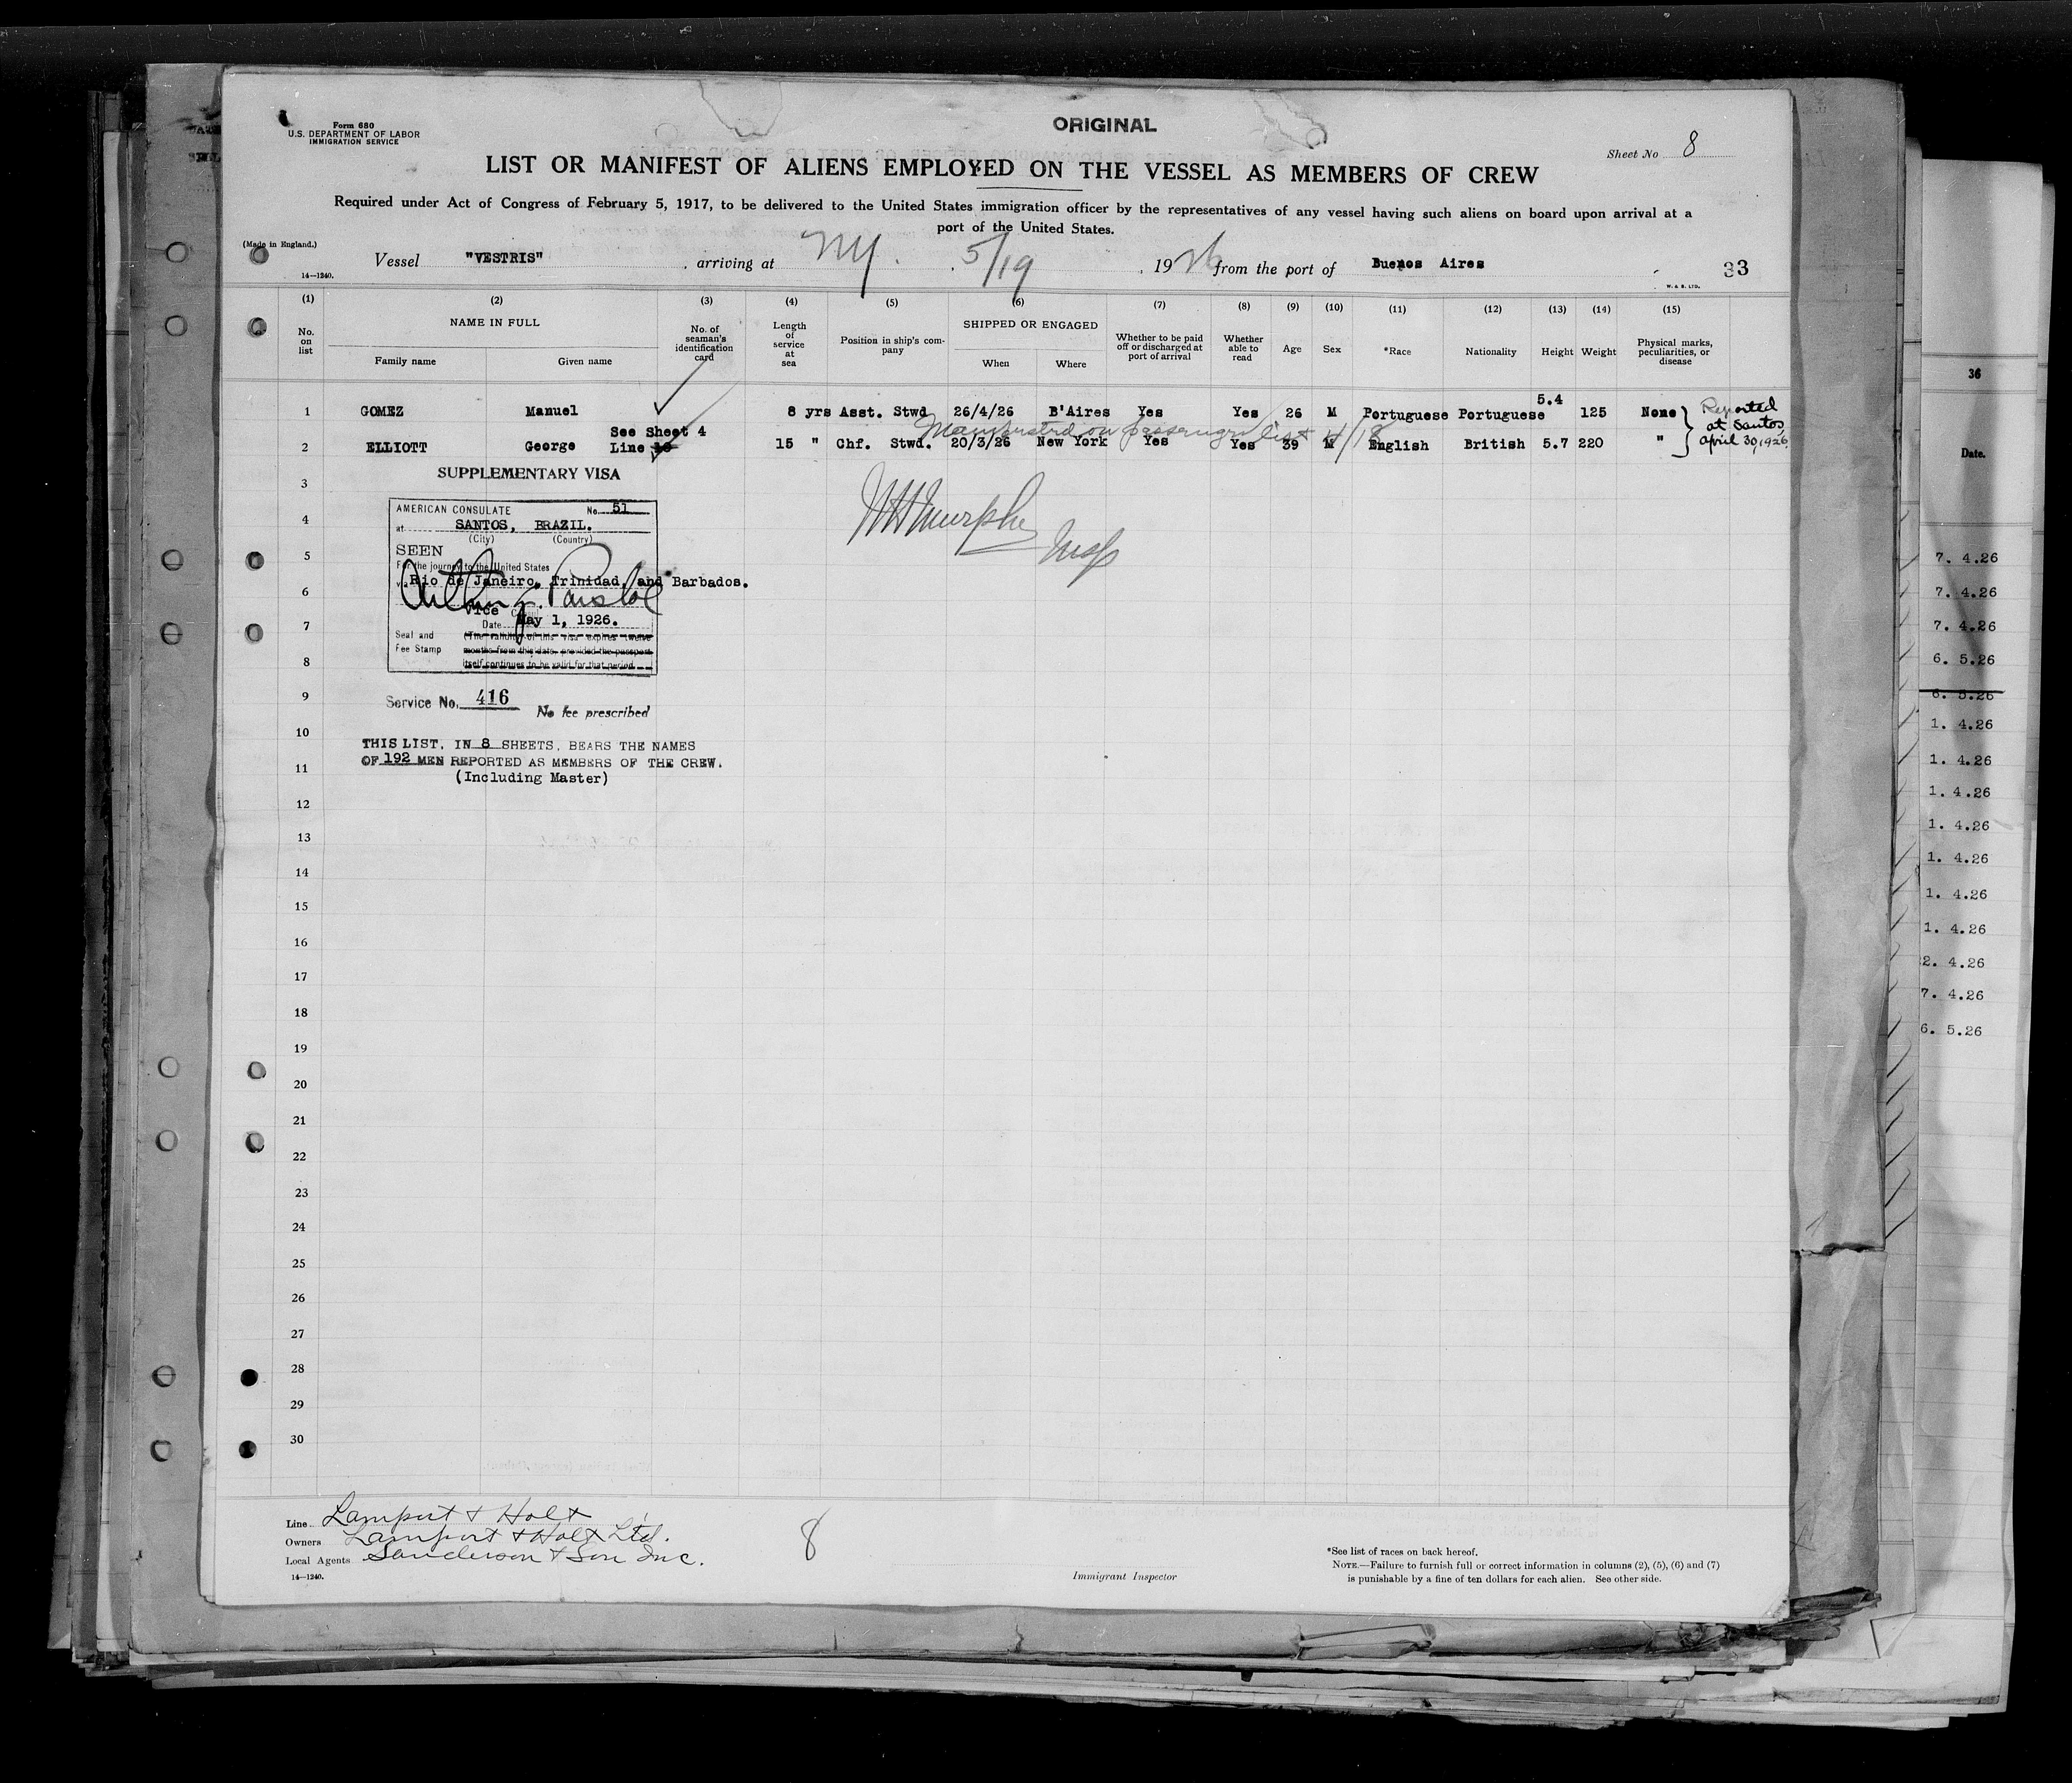 Form 680
U.S. DEPARTMENT OF LABOR
IMMIGRATION SERVICE
ORIGINAL
Sheet No 8
LIST OR MANIFEST OF ALIENS EMPLOYED ON THE VESSEL AS MEMBERS OF CREW
Required under Act of Congress of February 5, 1917, to be delivered to the United States immigration officer by the representatives of any vessel having such aliens on board upon arrival at a
port of the United States.
(Made in England.)
Vessel "VESTRIS", arriving at NY. 5/19, 1926 from the port of Buenos Aires
14—1240.
W. & S. LTD.
33
(1) (2) (3) (4) (5) (6) (7) (8) (9) (10) (11) (12) (13) (14) (15)
No. on list
NAME IN FULL
Family name Given name
No. of seaman's identification card
Length of service at sea
Position in ship's company
SHIPPED OR ENGAGED
When Where
Whether to be paid off or discharged at port of arrival
Whether able to read
Age
Sex
*Race
Nationality
Height
Weight
Physical marks, peculiarities, or disease
1 GOMEZ Manuel 8 yrs Asst. Stwd 26/4/26 B'Aires Yes Yes 26 M Portuguese Portuguese 5.4 125 None
Reported at Santos, April 30, 1926.
See Sheet 4
Manifested on passenger list 4/18
2 ELLIOTT George Line 15 " Chf. Stwd. 20/3/26 New York Yes Yes 39 M English British 5.7 220 "
SUPPLEMENTARY VISA
3
AMERICAN CONSULATE No. 51
4
at SANTOS, BRAZIL.
(City) (Country)
SEEN
5
For the journey to the United States
Rio de Janeiro, Trinidad, and Barbados.
6
Vice
Date May 1, 1926.
7
Seal and Fee Stamp
(The validity of this visa expires twelve
months from this date, provided the passport
itself continues to be valid for that period
8
W H Murphy Insp
Service No. 416
9
No fee prescribed
10
THIS LIST, IN 8 SHEETS, BEARS THE NAMES
OF 192 MEN REPORTED AS MEMBERS OF THE CREW.
11
(Including Master)
12
13
14
15
16
17
18
19
20
21
22
23
24
25
26
27
28
29
30
Line Lamport & Holt
Owners Lamport & Holt Ltd.
Local Agents Sanderson & Son Inc.
14—1240.
8
Immigrant Inspector
*See list of races on back hereof.
NOTE.—Failure to furnish full or correct information in columns (2), (5), (6) and (7)
is punishable by a fine of ten dollars for each alien. See other side.
36
Date.
7. 4.26
7. 4.26
7. 4.26
6. 5.26
6. 5.26
1. 4.26
1. 4.26
1. 4.26
1. 4.26
1. 4.26
1. 4.26
1. 4.26
2. 4.26
7. 4.26
6. 5.26